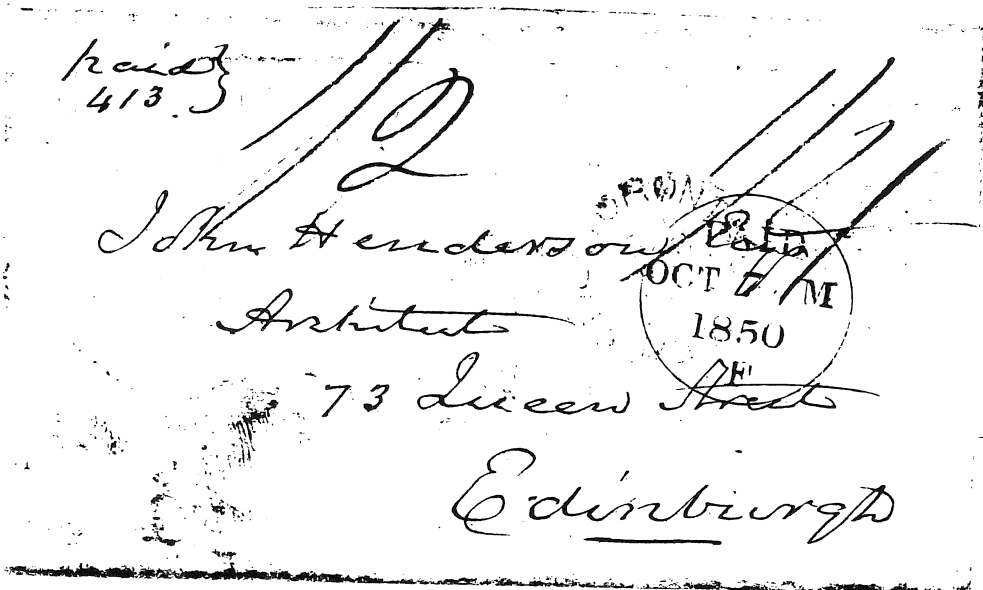 Paid
413
2
John Henderson
Architect
73 Queen Street
Edinburgh
OCT 7 M
1850
F